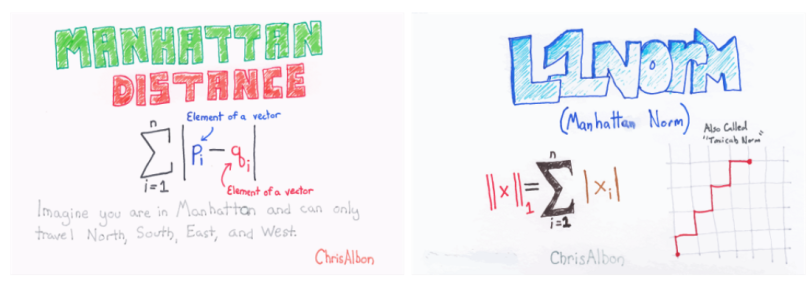 MANHATTAN
DISTANCE
Element of a vector
n
∑ | Pi − qi |
i=1
Element of a vector
Imagine you are in Manhattan and can only
travel North, South, East, and West.
ChrisAlbon
L1 Norm
(Manhattan Norm)
Also Called
"Taxicab Norm"
n
||x||₁ = ∑ |xi|
i=1
ChrisAlbon